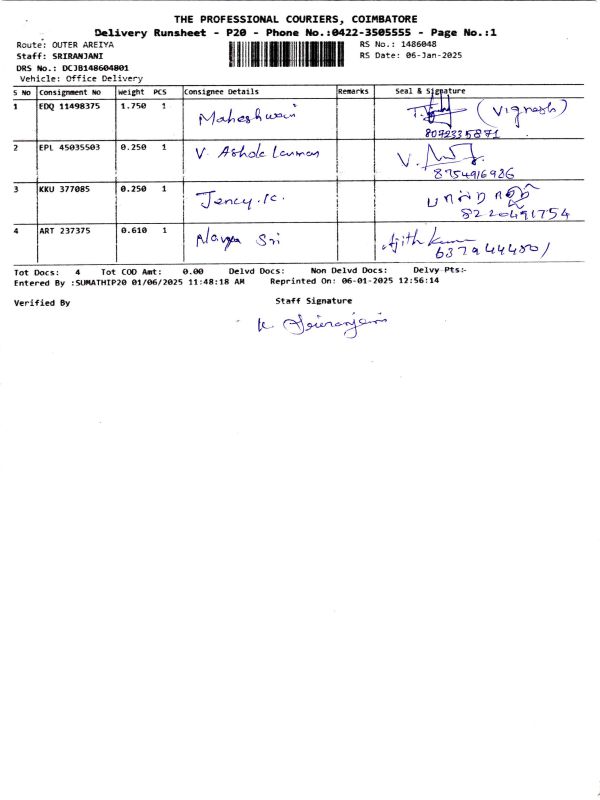 THE PROFESSIONAL COURIERS, COIMBATORE
Delivery Runsheet - P20 - Phone No.:0422-3505555 - Page No.:1
Route: OUTER AREIYA
RS No.: 1486048
Staff: SRIRANJANI
RS Date: 06-Jan-2025
DRS No.: DCJB148604801
Vehicle: Office Delivery
S No Consignment No Weight PCS Consignee Details Remarks Seal & Signature
1 EDQ 11498375 1.750 1 Maheshwari T. (Vignesh)
8072335871
2 EPL 45035503 0.250 1 V. Ashok kumar V.
8754916986
3 KKU 377085 0.250 1 Jency.K.
8220491754
4 ART 237375 0.610 1 Navya Sri Ajith Kumar
6379444801
Tot Docs: 4 Tot COD Amt: 0.00 Delvd Docs: Non Delvd Docs: Delvy Pts:-
Entered By :SUMATHIP20 01/06/2025 11:48:18 AM Reprinted On: 06-01-2025 12:56:14
Verified By Staff Signature
K. Sriranjani